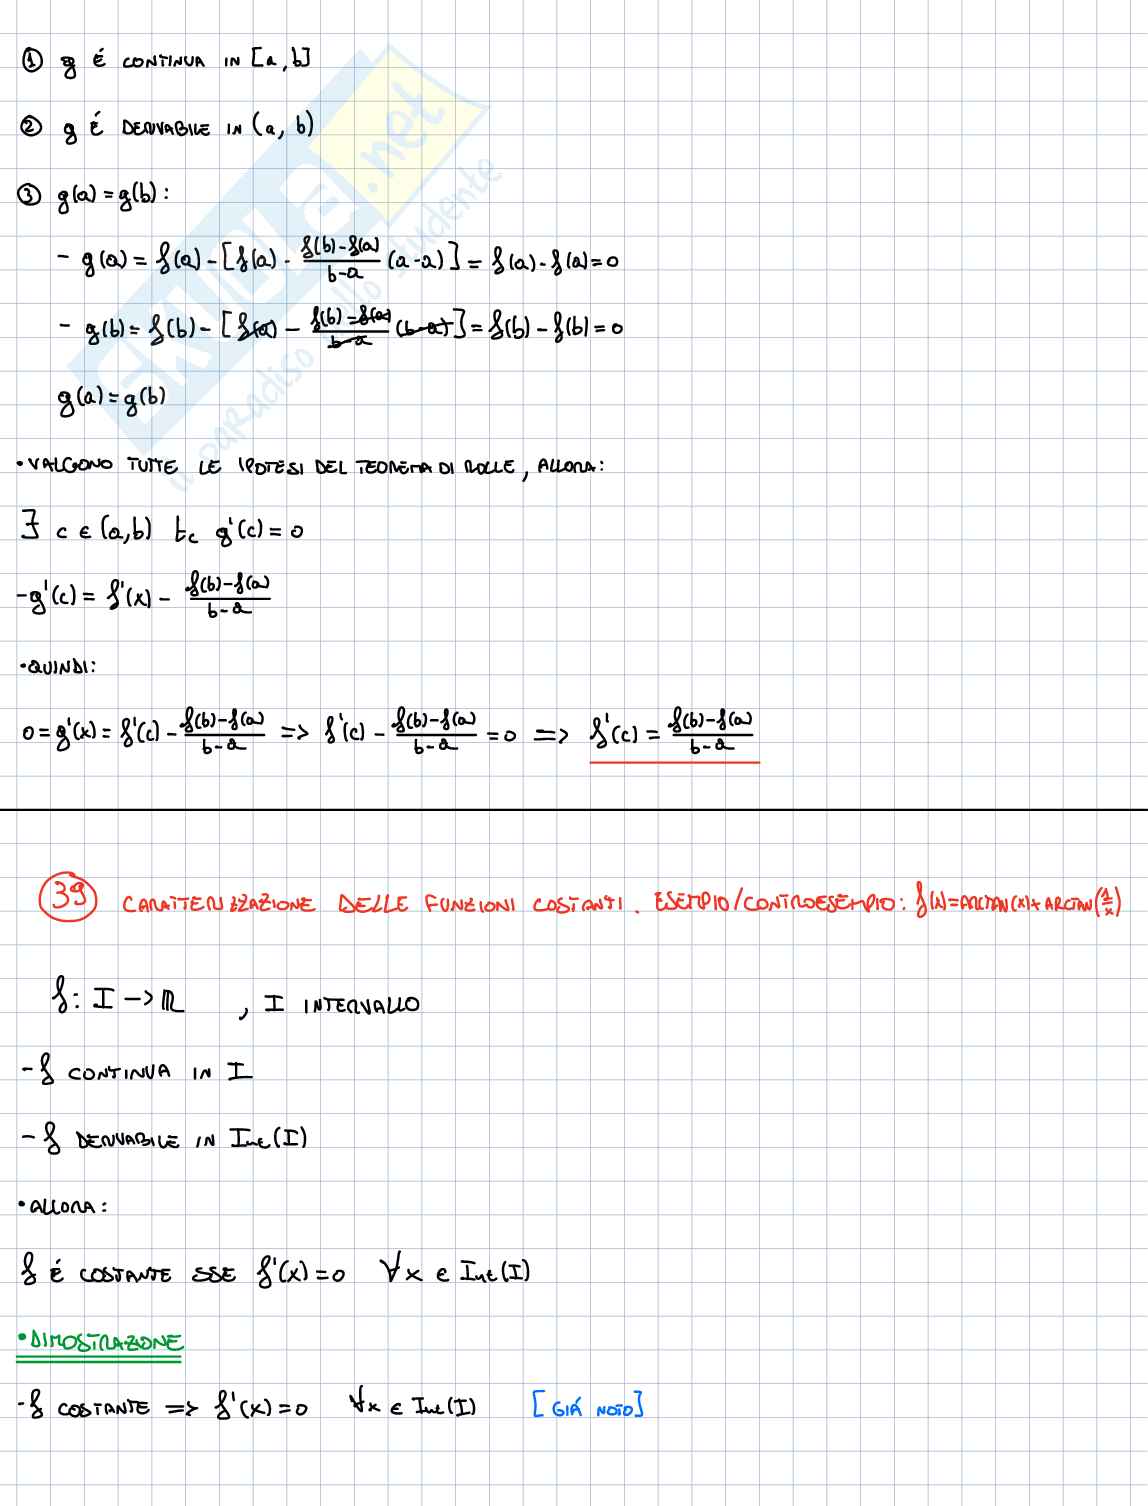 ① g É CONTINUA IN [a,b]
② g É DERIVABILE IN (a, b)
③ g(a) = g(b) :
- g(a) = f(a) - [f(a) - f(b)-f(a)/b-a (a-a)] = f(a) - f(a) = 0
- g(b) = f(b) - [f(a) - f(b)-f(a)/b-a (b-a)] = f(b) - f(b) = 0
g(a) = g(b)
• VALGONO TUTTE LE IPOTESI DEL TEOREMA DI ROLLE, ALLORA:
∃ c ∈ (a,b) tc g'(c) = 0
- g'(c) = f'(x) - f(b)-f(a)/b-a
• QUINDI:
0 = g'(x) = f'(c) - f(b)-f(a)/b-a => f'(c) - f(b)-f(a)/b-a = 0 => f'(c) = f(b)-f(a)/b-a
39 CARATTERIZZAZIONE DELLE FUNZIONI COSTANTI. ESEMPIO/CONTROESEMPIO: f(x)=ARCTAN(x)+ARCTAN(1/x)
f: I -> ℝ , I INTERVALLO
- f CONTINUA IN I
- f DERIVABILE IN Int(I)
• ALLORA:
f É COSTANTE SSE f'(x) = 0 ∀x ∈ Int(I)
• DIMOSTRAZIONE
- f COSTANTE => f'(x) = 0 ∀x ∈ Int(I) [GIÁ NOTO]
SKUOLA.net
il paradiso dello studente